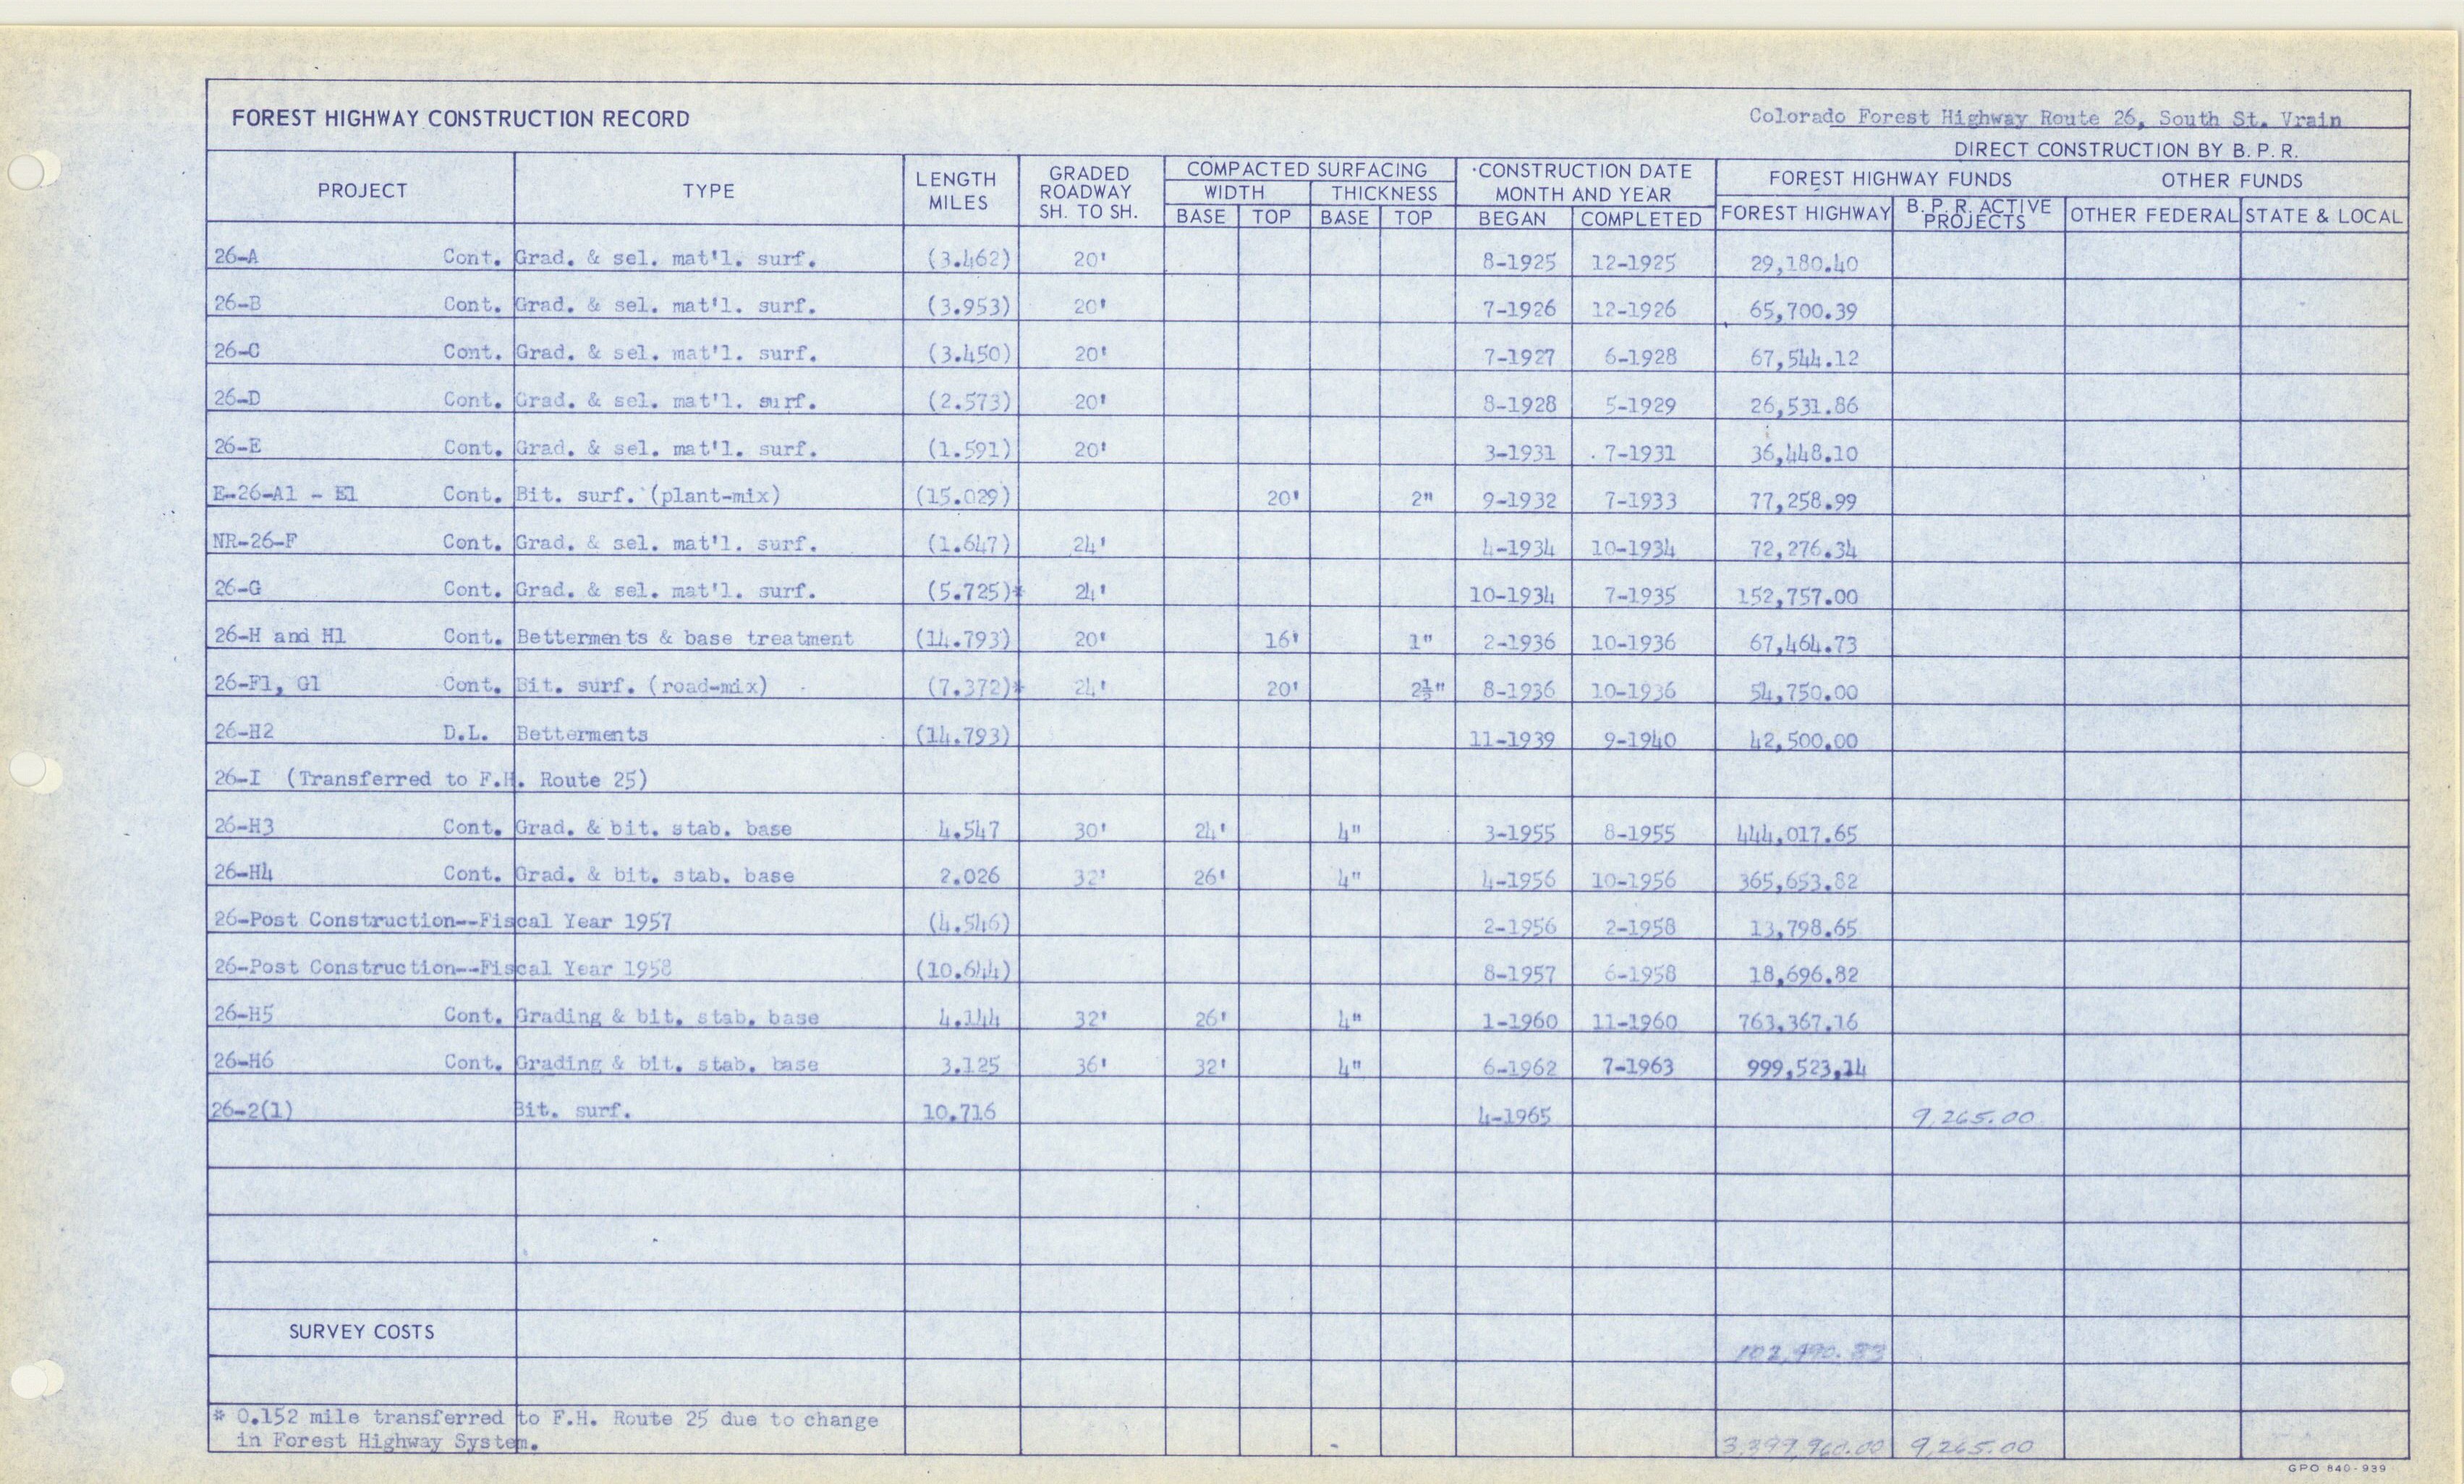 FOREST HIGHWAY CONSTRUCTION RECORD
Colorado Forest Highway Route 26, South St. Vrain
DIRECT CONSTRUCTION BY B. P. R.
PROJECT TYPE LENGTH MILES GRADED ROADWAY SH. TO SH. COMPACTED SURFACING CONSTRUCTION DATE MONTH AND YEAR FOREST HIGHWAY FUNDS OTHER FUNDS
WIDTH THICKNESS
BASE TOP BASE TOP BEGAN COMPLETED FOREST HIGHWAY B. P. R. ACTIVE PROJECTS OTHER FEDERAL STATE & LOCAL
26-A Cont. Grad. & sel. mat'l. surf. (3.462) 20' 8-1925 12-1925 29,180.40
26-B Cont. Grad. & sel. mat'l. surf. (3.953) 20' 7-1926 12-1926 65,700.39
26-C Cont. Grad. & sel. mat'l. surf. (3.450) 20' 7-1927 6-1928 67,544.12
26-D Cont. Grad. & sel. mat'l. surf. (2.573) 20' 8-1928 5-1929 26,531.86
26-E Cont. Grad. & sel. mat'l. surf. (1.591) 20' 3-1931 7-1931 36,448.10
E-26-A1 - E1 Cont. Bit. surf. (plant-mix) (15.029) 20' 2" 9-1932 7-1933 77,258.99
NR-26-F Cont. Grad. & sel. mat'l. surf. (1.647) 24' 4-1934 10-1934 72,276.34
26-G Cont. Grad. & sel. mat'l. surf. (5.725)* 24' 10-1934 7-1935 152,757.00
26-H and H1 Cont. Betterments & base treatment (14.793) 20' 16' 1" 2-1936 10-1936 67,464.73
26-F1, G1 Cont. Bit. surf. (road-mix) (7.372)* 24' 20' 2½" 8-1936 10-1936 54,750.00
26-H2 D.L. Betterments (14.793) 11-1939 9-1940 42,500.00
26-I (Transferred to F.H. Route 25)
26-H3 Cont. Grad. & bit. stab. base 4.547 30' 24' 4" 3-1955 8-1955 444,017.65
26-H4 Cont. Grad. & bit. stab. base 2.026 32' 26' 4" 4-1956 10-1956 365,653.82
26-Post Construction--Fiscal Year 1957 (4.546) 2-1956 2-1958 13,798.65
26-Post Construction--Fiscal Year 1958 (10.644) 8-1957 6-1958 18,696.82
26-H5 Cont. Grading & bit. stab. base 4.144 32' 26' 4" 1-1960 11-1960 763,367.16
26-H6 Cont. Grading & bit. stab. base 3.125 36' 32' 4" 6-1962 7-1963 999,523,14
26-2(1) Bit. surf. 10.716 4-1965 9,265.00
SURVEY COSTS
* 0.152 mile transferred to F.H. Route 25 due to change
in Forest Highway System.
9,265.00
GPO 840-939